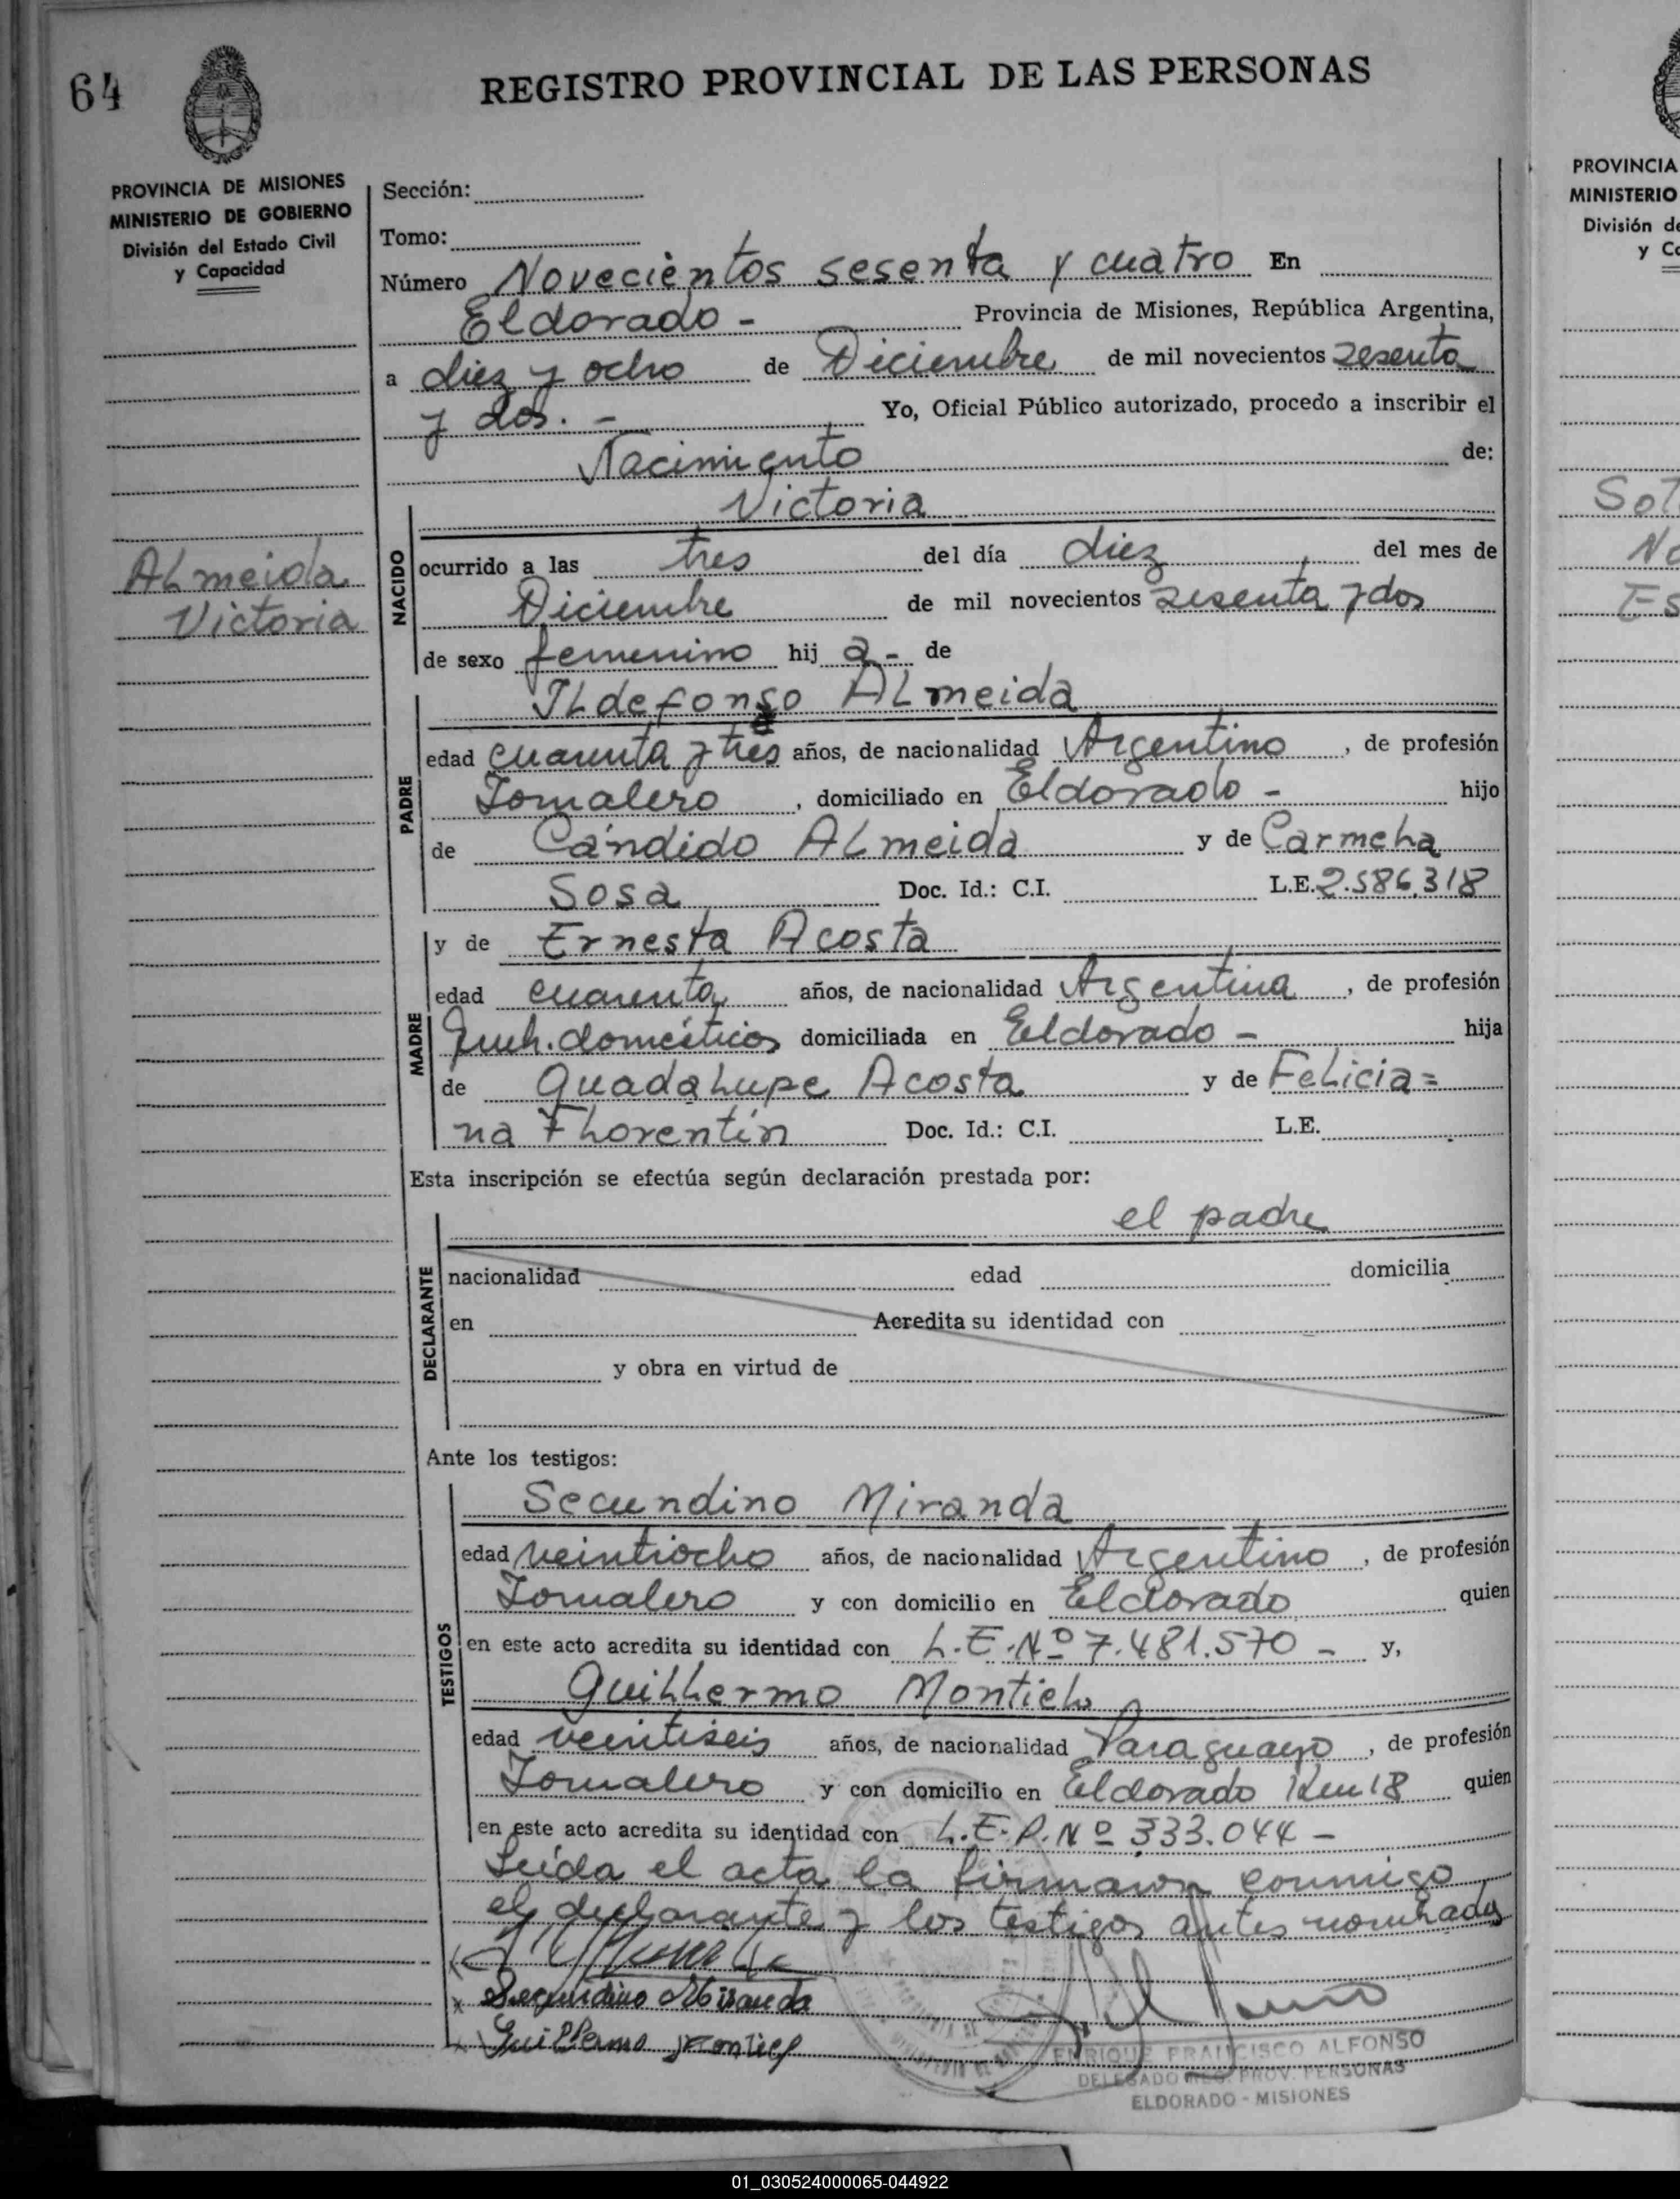 64
REGISTRO PROVINCIAL DE LAS PERSONAS
PROVINCIA DE MISIONES
MINISTERIO DE GOBIERNO
División del Estado Civil
y Capacidad
Almeida
Victoria
Sección:
Tomo:
Número Novecientos sesenta y cuatro En
Eldorado - Provincia de Misiones, República Argentina,
a diez y ocho de Diciembre de mil novecientos sesenta
y dos. - Yo, Oficial Público autorizado, procedo a inscribir el
Nacimiento de:
NACIDO
Victoria
ocurrido a las tres del día diez del mes de
Diciembre de mil novecientos sesenta y dos
de sexo femenino hij a - de
PADRE
Ildefonso Almeida
edad cuarenta y tres años, de nacionalidad Argentino, de profesión
Jornalero, domiciliado en Eldorado - hijo
de Cándido Almeida y de Carmela
Sosa Doc. Id.: C.I. L.E. 2.586.318
MADRE
y de Ernesta Acosta
edad cuarenta años, de nacionalidad Argentina, de profesión
domésticos domiciliada en Eldorado - hija
de Guadalupe Acosta y de Felicia=
na Florentín Doc. Id.: C.I. L.E.
Esta inscripción se efectúa según declaración prestada por:
DECLARANTE
el padre
nacionalidad edad domicilia
en Acredita su identidad con
y obra en virtud de
Ante los testigos:
TESTIGOS
Secundino Miranda
edad veintiocho años, de nacionalidad Argentino, de profesión
Jornalero y con domicilio en Eldorado quien
en este acto acredita su identidad con L.E. Nº 7.481.570 - y,
Guillermo Montiel
edad veintiseis años, de nacionalidad Paraguayo, de profesión
Jornalero y con domicilio en Eldorado Km 18 quien
en este acto acredita su identidad con L.E.P. Nº 333.044 -
Leída el acta la firmaron conmigo
el declarante y los testigos antes nombrados
x Secundino Miranda
x Guillermo Montiel
ENRIQUE FRANCISCO ALFONSO
DELEGADO REG. PROV. PERSONAS
ELDORADO - MISIONES
PROVINCIA
MINISTERIO
División de
y Ca
Sot
No
Es
01_030524000065-044922